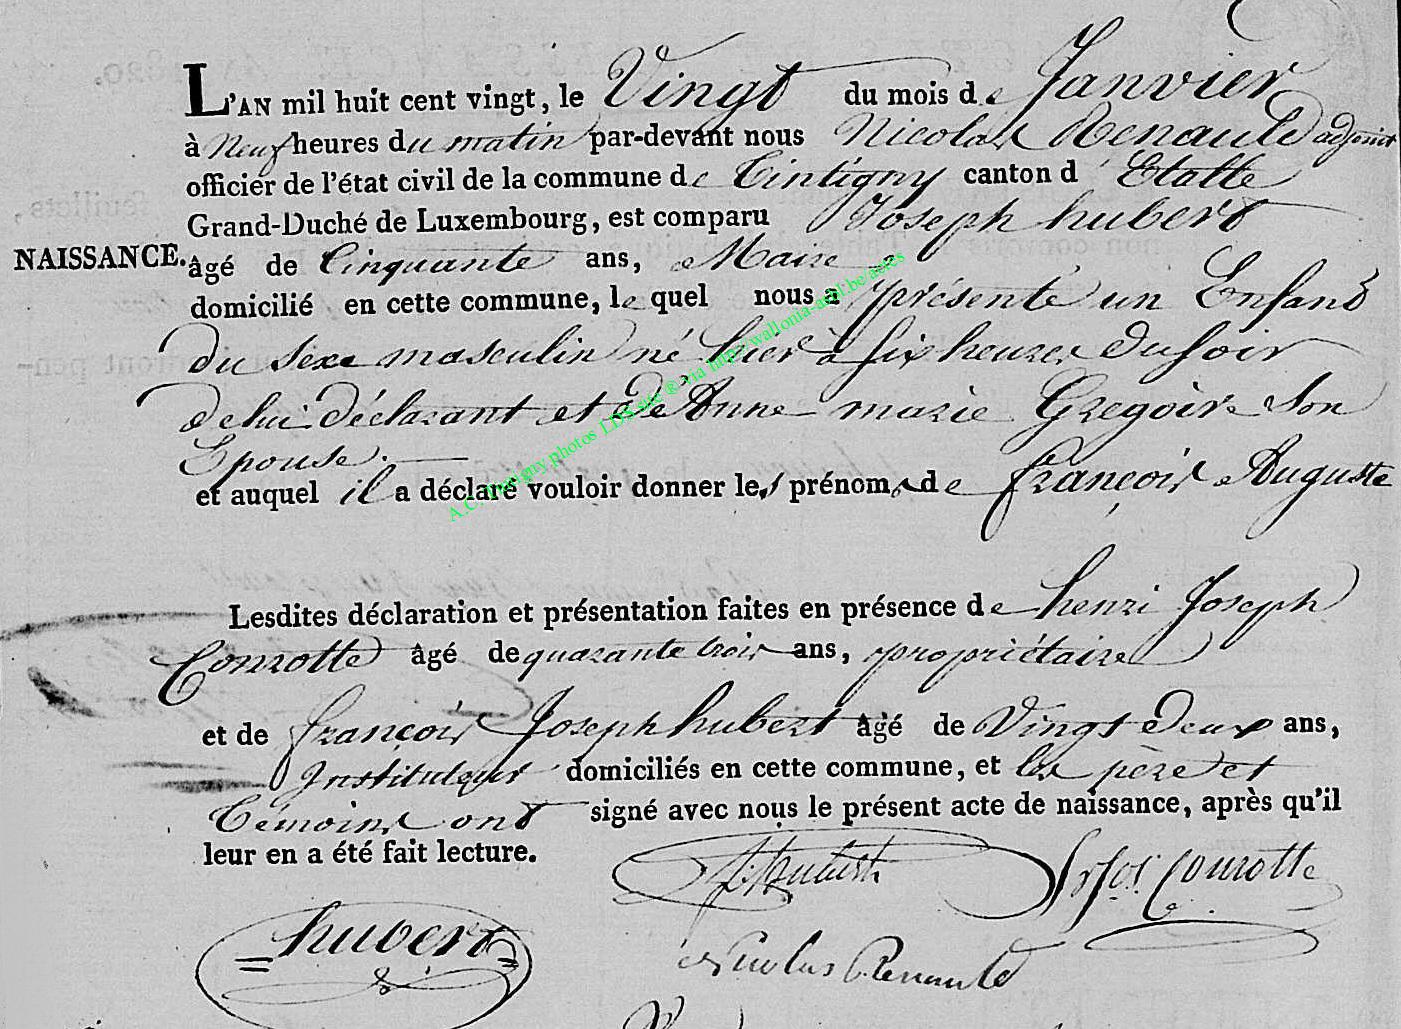 L'AN mil huit cent vingt, le Vingt du mois de Janvier
à Neuf heures du matin par-devant nous Nicolas Renauld adjoint
officier de l'état civil de la commune de Tintigny canton d'Etalle
Grand-Duché de Luxembourg, est comparu Joseph hubert
NAISSANCE. âgé de Cinquante ans, Maire
domicilié en cette commune, le quel nous a présenté un Enfant
du sexe masculin né hier à six heures du soir
de lui déclarant et de Anne marie Gregoire Son
Epouse.
et auquel il a déclaré vouloir donner les prénoms de françois Auguste
A.C. Tintigny photos LDS site ® via http://wallonia-asbl.be/actes
Lesdites déclaration et présentation faites en présence de henri Joseph
Conrotte âgé de quarante trois ans, propriétaire
et de françois Joseph hubert âgé de Vingt deux ans,
Instituteur domiciliés en cette commune, et les père et
Témoins ont signé avec nous le présent acte de naissance, après qu'il
leur en a été fait lecture.
hubert
Conrotte
Nicolas Renauld